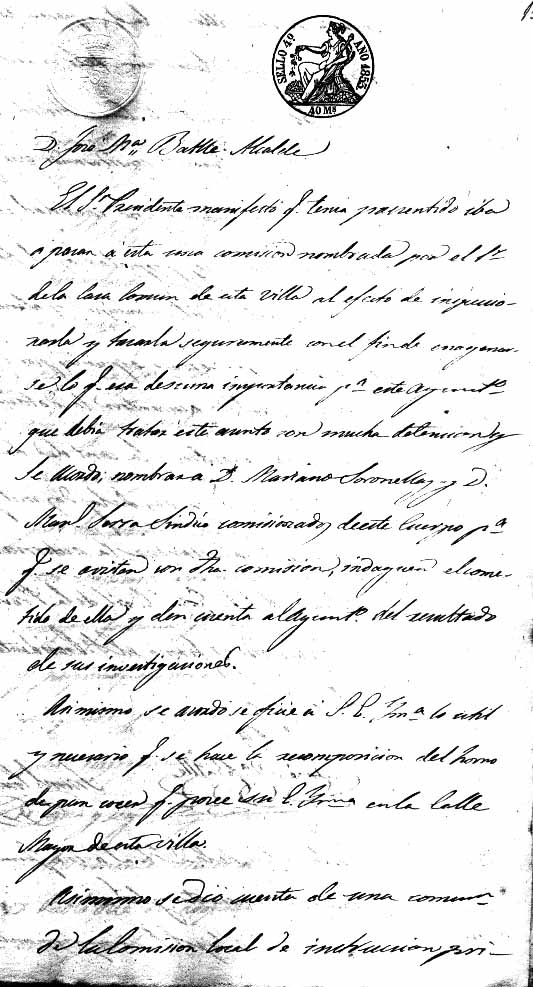 SELLO 4º AÑO 1855
40 Ms
D. José Mª Batlle Alcalde
El Sr Presidente manifestó q. tenia por sentido iba
a pasar á esta una comision nombrada por el Sr
de la Casa Comun de esta villa al efecto de inspeccio-
narla y tasarla seguramente con el fin de enagenar-
se lo q. era de suma importancia pª este Ayuntº
que debia tratar este asunto con mucha detencion y
se acordó, nombrar a D. Mariano Soronellas y D.
Manl Serra Sindico comisionados de este Cuerpo pª
q. se avisten con dha. comision, indaguen el come-
tido de ella y dén cuenta al Ayuntº. del resultado
de sus investigaciones.
Asimismo se acordó se oficie á S. E. Yma lo util
y necesario q. se hace la recomposicion del horno
de pan cocer q. posee su E. Yma en la Calle
Mayor de esta villa.
Asimismo se dió cuenta de una comunn
de la Comision local de instruccion pri-